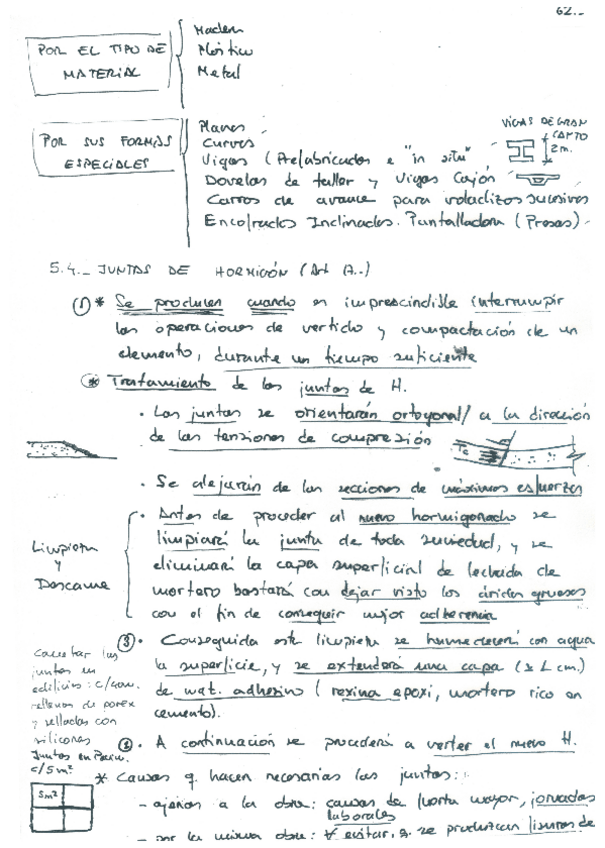 62..
POR EL TIPO DE
MATERIAL
Madera
Plástico
Metal
POR SUS FORMAS
ESPECIALES
Planos
Curvos
Vigas (Prefabricados e "in situ"
Dovelas de taller y Vigas Cajón
Carros de avance para voladizos sucesivos
Encofrados Inclinados. Pantalladora (Presas)
VIGAS DE GRAN
CANTO
2m.
5.4._ JUNTAS DE HORMIGÓN (Art 17..)
① * Se producen cuando es imprescindible interrumpir
las operaciones de vertido y compactación de un
elemento, durante un tiempo suficiente
* Tratamiento de las juntas de H.
· Las juntas se orientarán ortogonal/ a la dirección
de las tensiones de compresión
Tc
· Se alejarán de las secciones de máximos esfuerzos
Limpieza
y
Descarne
· Antes de proceder al nuevo hormigonado se
limpiará la junta de toda suciedad, y se
eliminará la capa superficial de lechada de
mortero bastará con dejar visto los áridos gruesos
con el fin de conseguir mejor adherencia
③ · Conseguida esta limpieza se humedecerá con agua
la superficie, y se extenderá una capa (≥ 1 cm.)
de mat. adhesivo (resina epoxi, mortero rico en
cemento).
las
juntas en
edificios: c/40m.
rellenas de porex
y selladas con
siliconas
Juntas en Pavim.
c/5m²
5m²
· A continuación se procederá a verter el nuevo H.
* Causas q. hacen necesarias las juntas:
- ajenas a la obra: causas de fuerza mayor, jornadas
laborales
- por la misma obra: evitar, q. se produzcan fisuras de